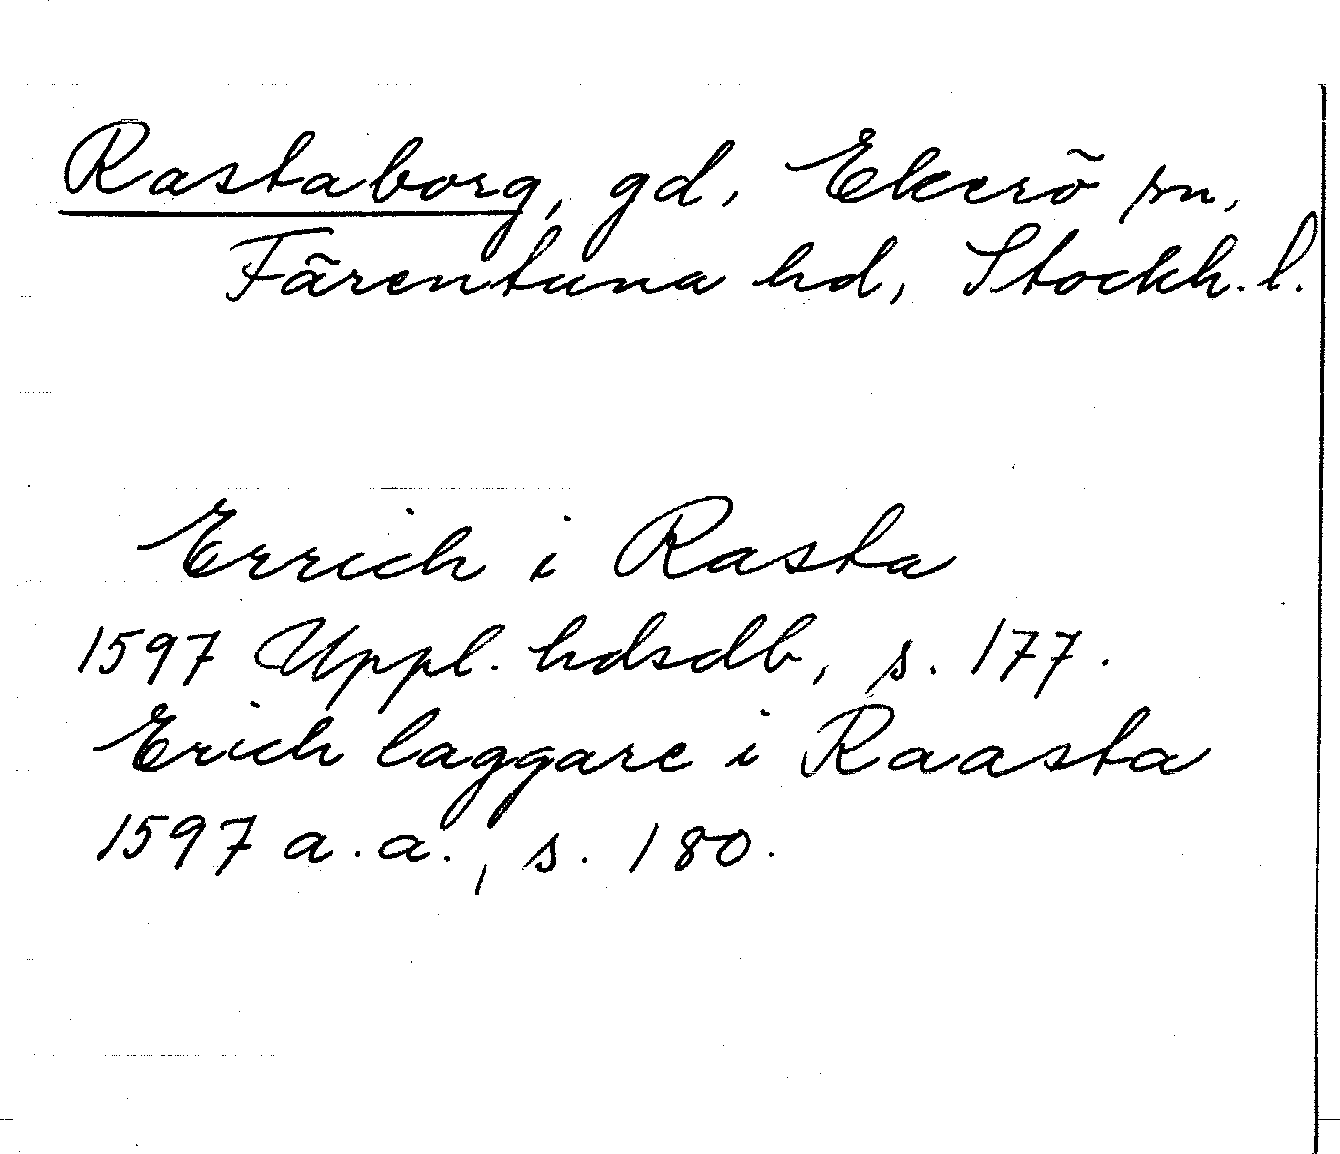 Rastaborg, gd, Ekerö sn,
Färentuna hd, Stockh. l.
Errich i Rasta
1597 Uppl. hdsdb, s. 177.
Erich laggare i Raasta
1597 a.a., s. 180.